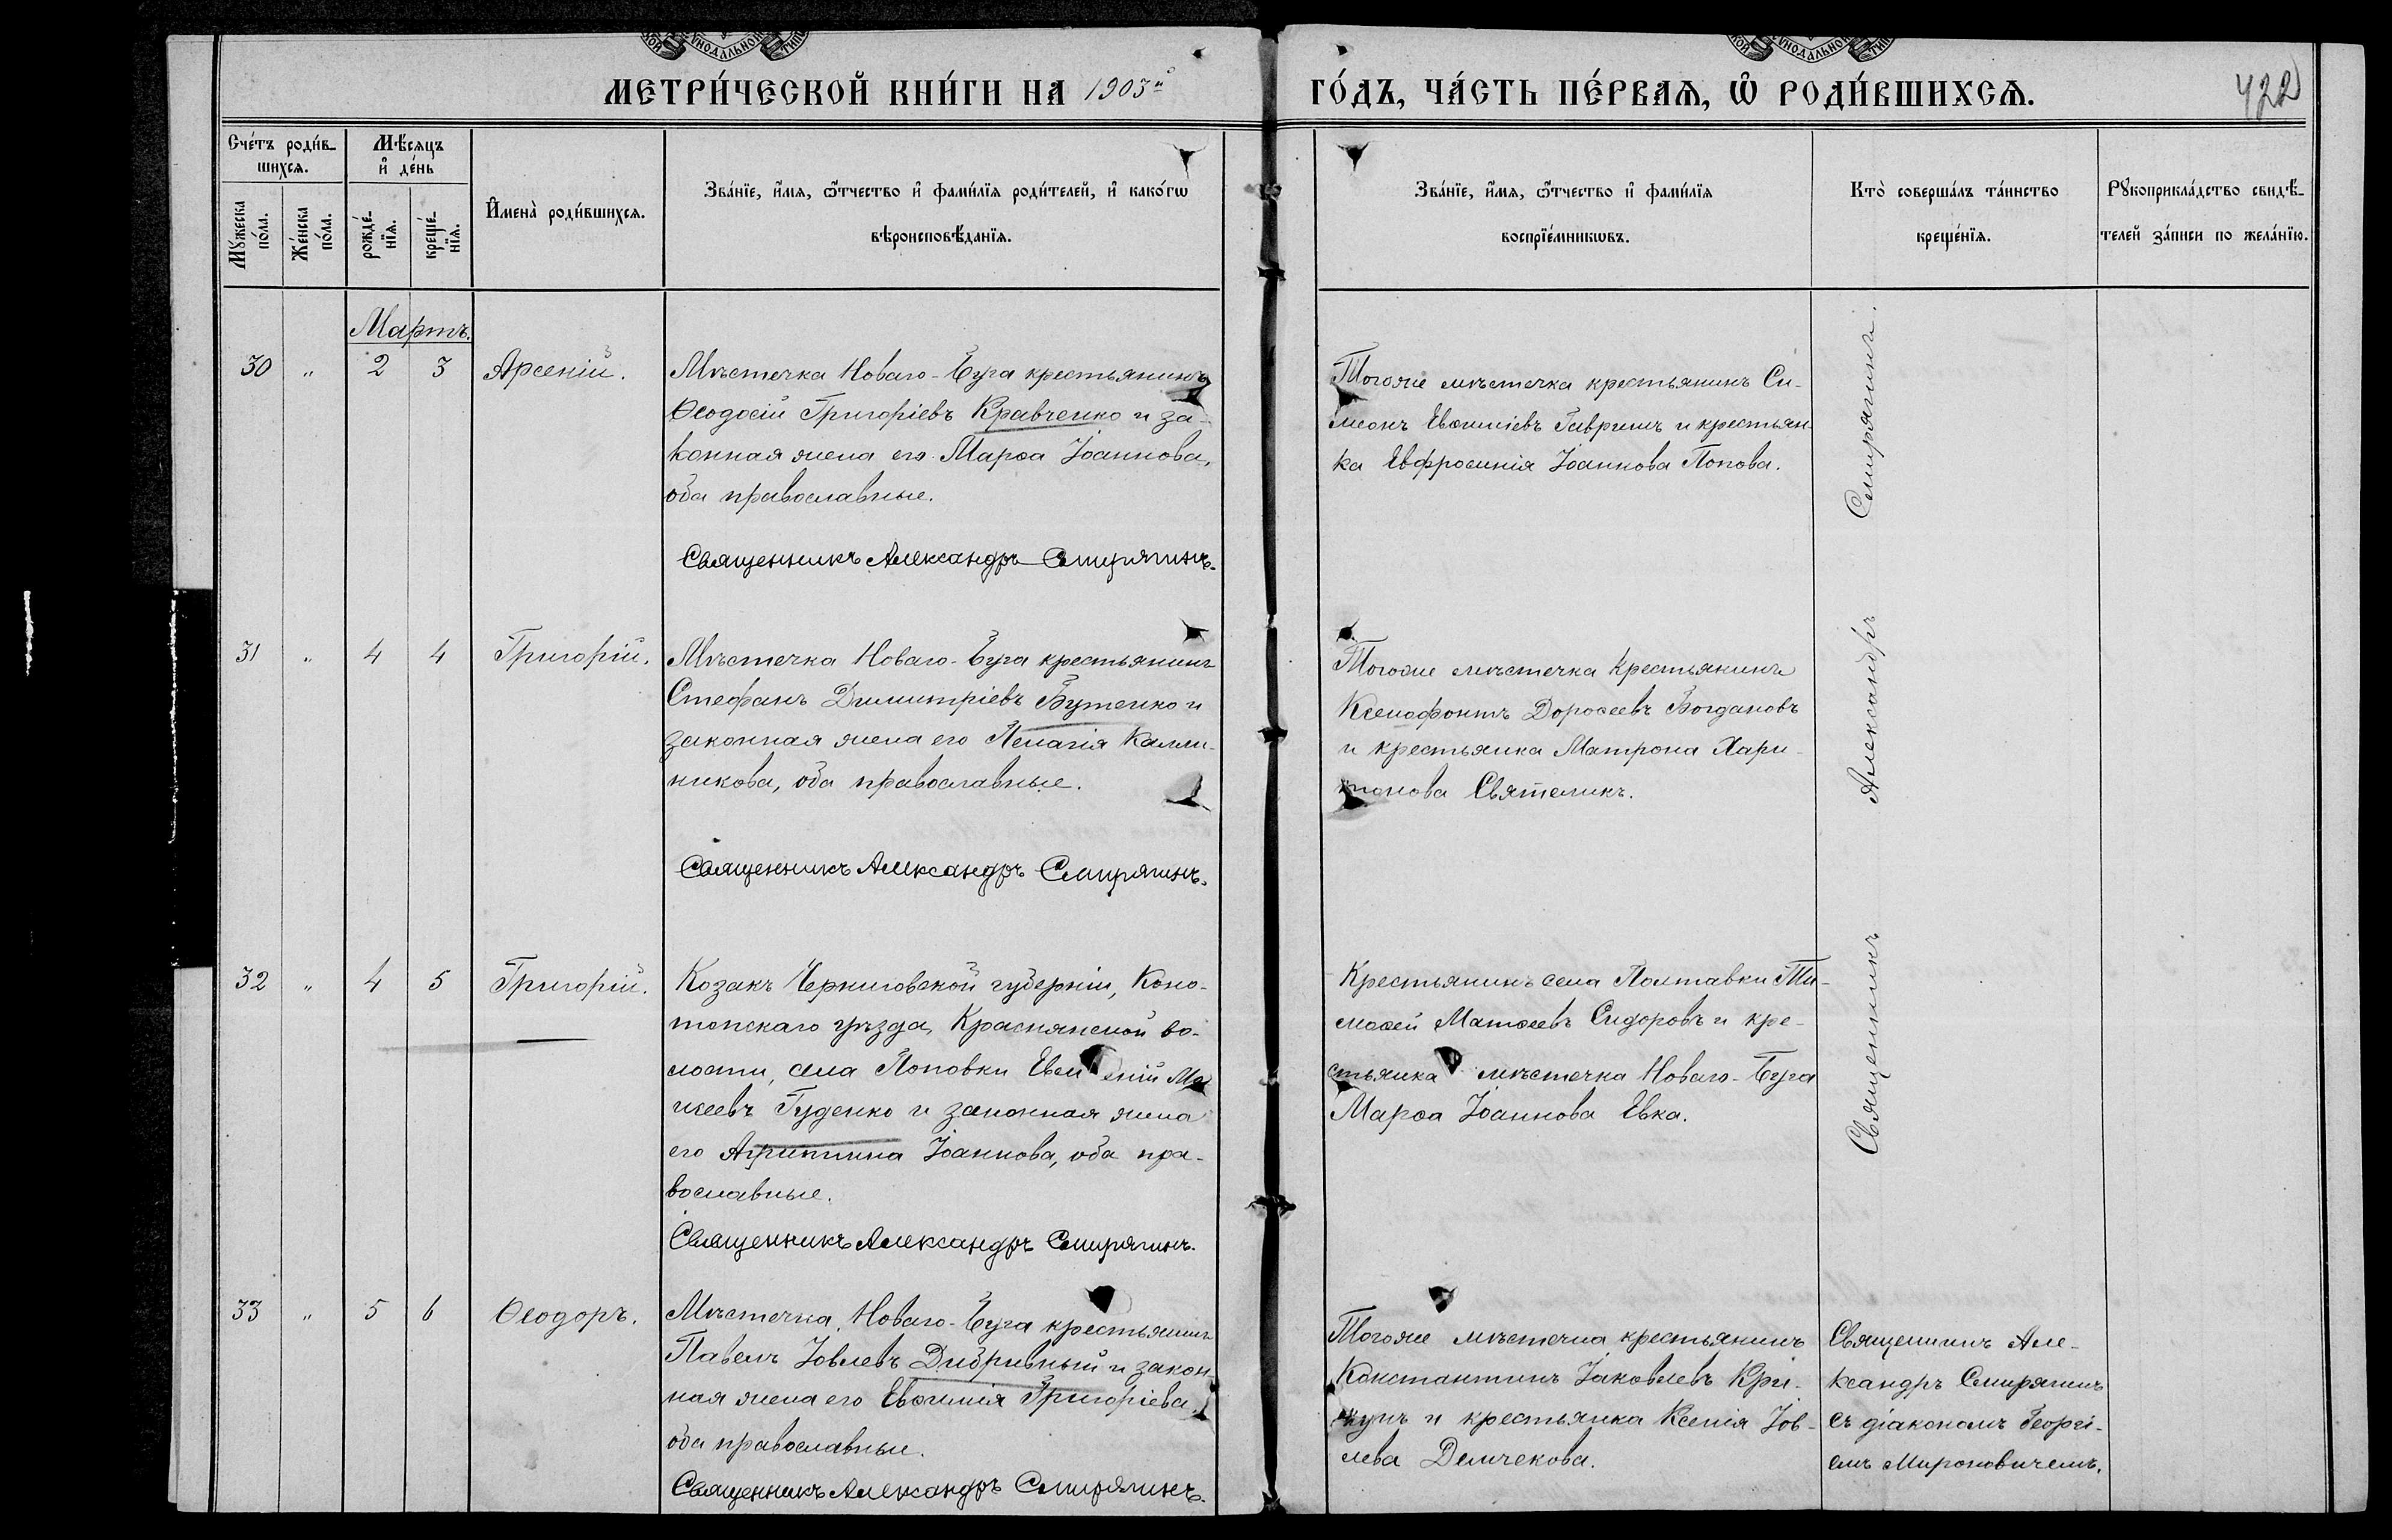 МЕТРИ́ЧЕСКОЙ КНИ́ГИ НА 1903й
ГО́ДЪ, ЧА́СТЬ ПЕ́РВАѦ, Ѡ РОДИ́ВШИХСѦ.
422
Сче́тъ роди́в-
шихсѧ.
Мѣ́сяцъ
и де́нь
Мꙋ́жеска
по́ла.
Же́нска
по́ла.
рожде́-
нїѧ.
креще́-
нїѧ.
Имена̀ роди́вшихсѧ.
Зва́нїе, и́мѧ, ѻ́тчество и фами́лїѧ роди́телей, и како́гѡ
вѣроисповѣ́данїѧ.
Зва́нїе, и́мѧ, ѻ́тчество и фами́лїѧ
воспрїе́мникѡвъ.
Кто̀ соверша́лъ та́инство
креще́нїѧ.
Рꙋкоприкла́дство свидѣ́-
телей за́писи по жела́нїю.
Мартъ.
30 " 2 3 Арсеній.
Мѣстечка Новаго-Буга крестьянинъ
Ѳеодосій Григоріевъ Кравченко и за-
конная жена его Марѳа Іоаннова,
оба православные.
Священникъ Александръ Смирягинъ.
Тогоже мѣстечка крестьянинъ Си-
меонъ Евѳиміевъ Гавришъ и крестьян-
ка Евфросинія Іоаннова Попова.
31 " 4 4 Григорій.
Мѣстечка Новаго-Буга крестьянинъ
Стефанъ Димитріевъ Бутенко и
законная жена его Пелагія Калли-
никова, оба православные.
Священникъ Александръ Смирягинъ.
Тогоже мѣстечка крестьянинъ
Ксенофонтъ Дороѳеевъ Богдановъ
и крестьянка Матрона Хари-
тонова Святеликъ.
32 " 4 5 Григорій.
Козакъ Черниговской губерніи, Коно-
топскаго уѣзда, Краснянской во-
лости, села Поповки
Гуденко и законная жена
его Агриппина Іоаннова, оба пра-
вославные.
Священникъ Александръ Смирягинъ.
Крестьянинъ села Полтавки Ти-
моѳей Матѳеевъ Сидоровъ и кре-
стьянка мѣстечка Новаго-Буга
Марѳа Іоаннова Евка.
Священникъ Александръ Смирягинъ.
33 " 5 6 Ѳеодоръ.
Мѣстечка Новаго-Буга крестьянинъ
Павелъ Іовлевъ Дибривный и закон-
ная жена его Евѳимія Григоріева,
оба православные.
Священникъ Александръ Смирягинъ.
Тогоже мѣстечка крестьянинъ
Константинъ Іаковлевъ
и крестьянка Ксенія Іов-
лева Демчекова.
Священникъ Але-
ксандръ Смирягинъ
съ діакономъ Георгі-
емъ Мироновичемъ.